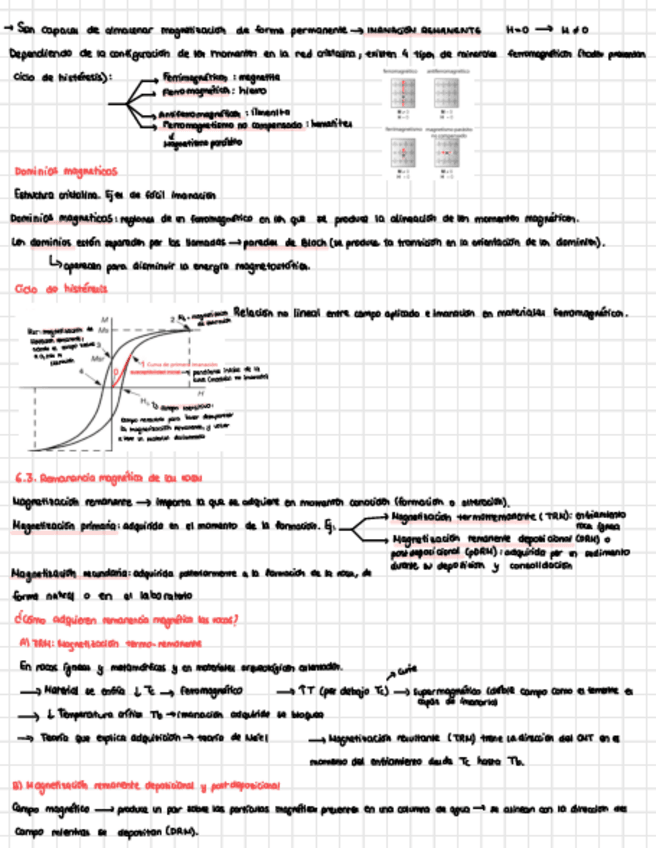 → Son capaces de almacenar magnetización de forma permanente → IMANACIÓN REMANENTE H=0 → M≠0
Dependiendo de la configuración de los momentos en la red cristalina, existen 4 tipos de minerales ferromagnéticos (todos presentan
ciclo de histéresis):
Ferrimagnéticos: magnetita
Ferromagnéticos: hierro
Antiferromagnéticos: ilmenita
Ferromagnetismo no compensado: hematites
Magnetismo parásito
ferromagnético antiferromagnético
ferrimagnetismo magnetismo parásito no compensado
Dominios magneticos
Estructura cristalina. Ejes de fácil imanación
Dominios magneticos: regiones de un ferromagnético en las que se produce la alineación de los momentos magnéticos.
Los dominios están separados por las llamadas → paredes de Bloch (se produce la transición en la orientación de los dominios).
↳ aparecen para disminuir la energía magnetostática.
Ciclo de histéresis
Relación no lineal entre campo aplicado e imanación en materiales ferromagnéticos.
M
Ms
Msr
H
Curva de primera imanación
6.3. Remanencia magnética de las rocas
Magnetización remanente → importa la que se adquiere en momentos conocidos (formación o alteración).
Magnetización primaria: adquirida en el momento de la formación. Ej.
Magnetización termorremanente (TRM): enfriamiento
roca ígnea
Magnetización remanente deposicional (DRM) o
postdeposicional (pDRM): adquirida por un sedimento
durante su deposición y consolidación
Magnetización secundaria: adquirida posteriormente a la formación de la roca, de
forma natural o en el laboratorio
¿Cómo adquieren remanencia magnética las rocas?
A) TRM: Magnetización termo-remanente
En rocas ígneas y metamórficas y en materiales arqueológicos calentados.
Curie
→ Material se enfría ↓ Tc → ferromagnético → ↑T (por debajo Tc) → supermagnético (doble campo como el terrestre es
capaz de imanarlo)
→ ↓ Temperatura crítica Tb → imanación adquirida se bloquea
→ Teoría que explica adquisición → teoría de Néel → Magnetización resultante (TRM) tiene la dirección del CMT en el
momento del enfriamiento desde Tc hasta Tb.
B) Magnetización remanente deposicional y post-deposicional
Campo magnético → produce un par sobre las partículas magnéticas presentes en una columna de agua → se alinean con la dirección del
campo mientras se depositan (DRM).